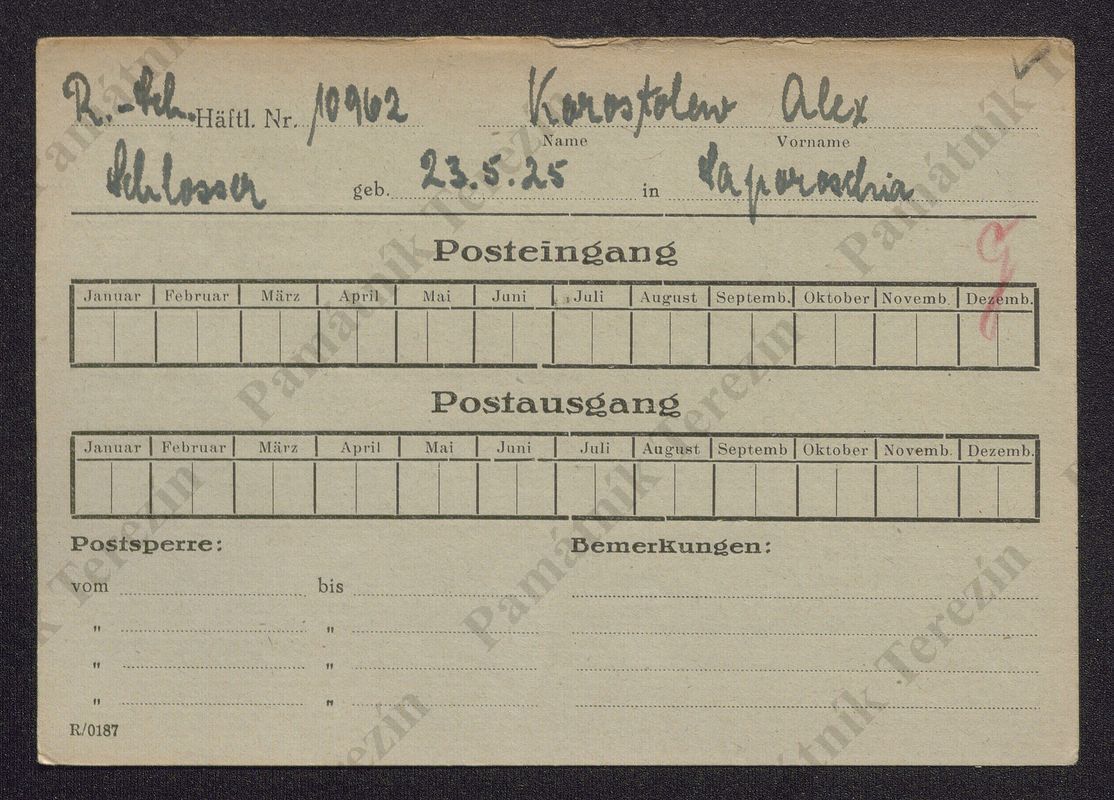 R.-Sch. Häftl. Nr. 10962 Karostolew Alex
Name Vorname
Schlosser geb. 23.5.25 in Saporoschia
Posteingang
Januar Februar März April Mai Juni Juli August Septemb. Oktober Novemb. Dezemb.
Postausgang
Januar Februar März April Mai Juni Juli August Septemb Oktober Novemb. Dezemb.
Postsperre: Bemerkungen:
vom bis
" "
" "
" "
R/0187
Památník Terezín